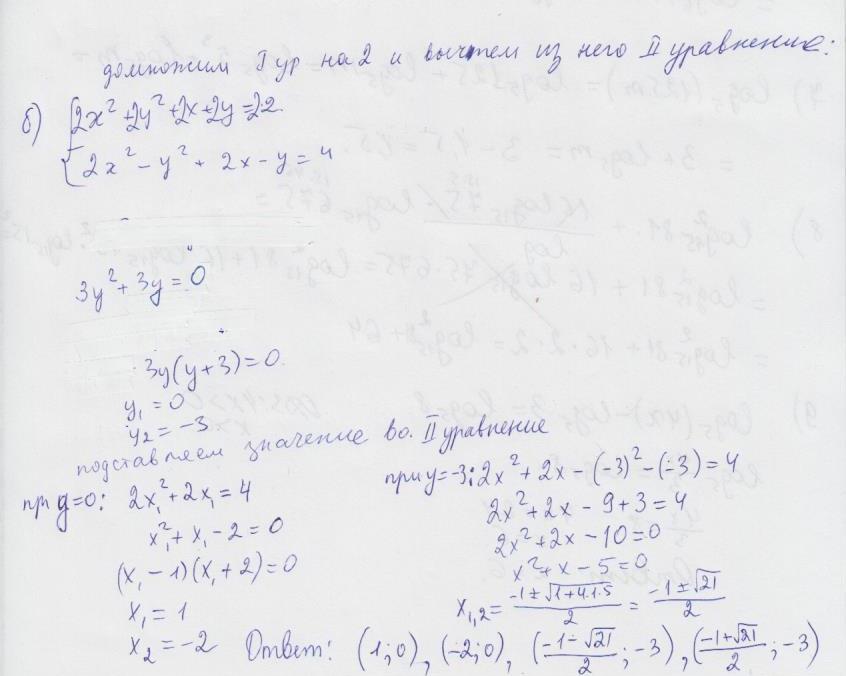 домножим I ур на 2 и вычтем из него II уравнение:
б) { 2x² + 2y² + 2x + 2y = 2·2
2x² − y² + 2x − y = 4
3y² + 3y = 0
3y(y+3) = 0
y₁ = 0
y₂ = −3
подставляем значение во II уравнение
при y=0: 2x₁² + 2x₁ = 4
x₁² + x₁ − 2 = 0
(x₁ − 1)(x₁ + 2) = 0
x₁ = 1
x₂ = −2
при y=−3: 2x² + 2x − (−3)² − (−3) = 4
2x² + 2x − 9 + 3 = 4
2x² + 2x − 10 = 0
x² + x − 5 = 0
x₁,₂ = (−1 ± √(1+4·1·5))/2 = (−1 ± √21)/2
Ответ: (1;0), (−2;0), ((−1−√21)/2; −3), ((−1+√21)/2; −3)